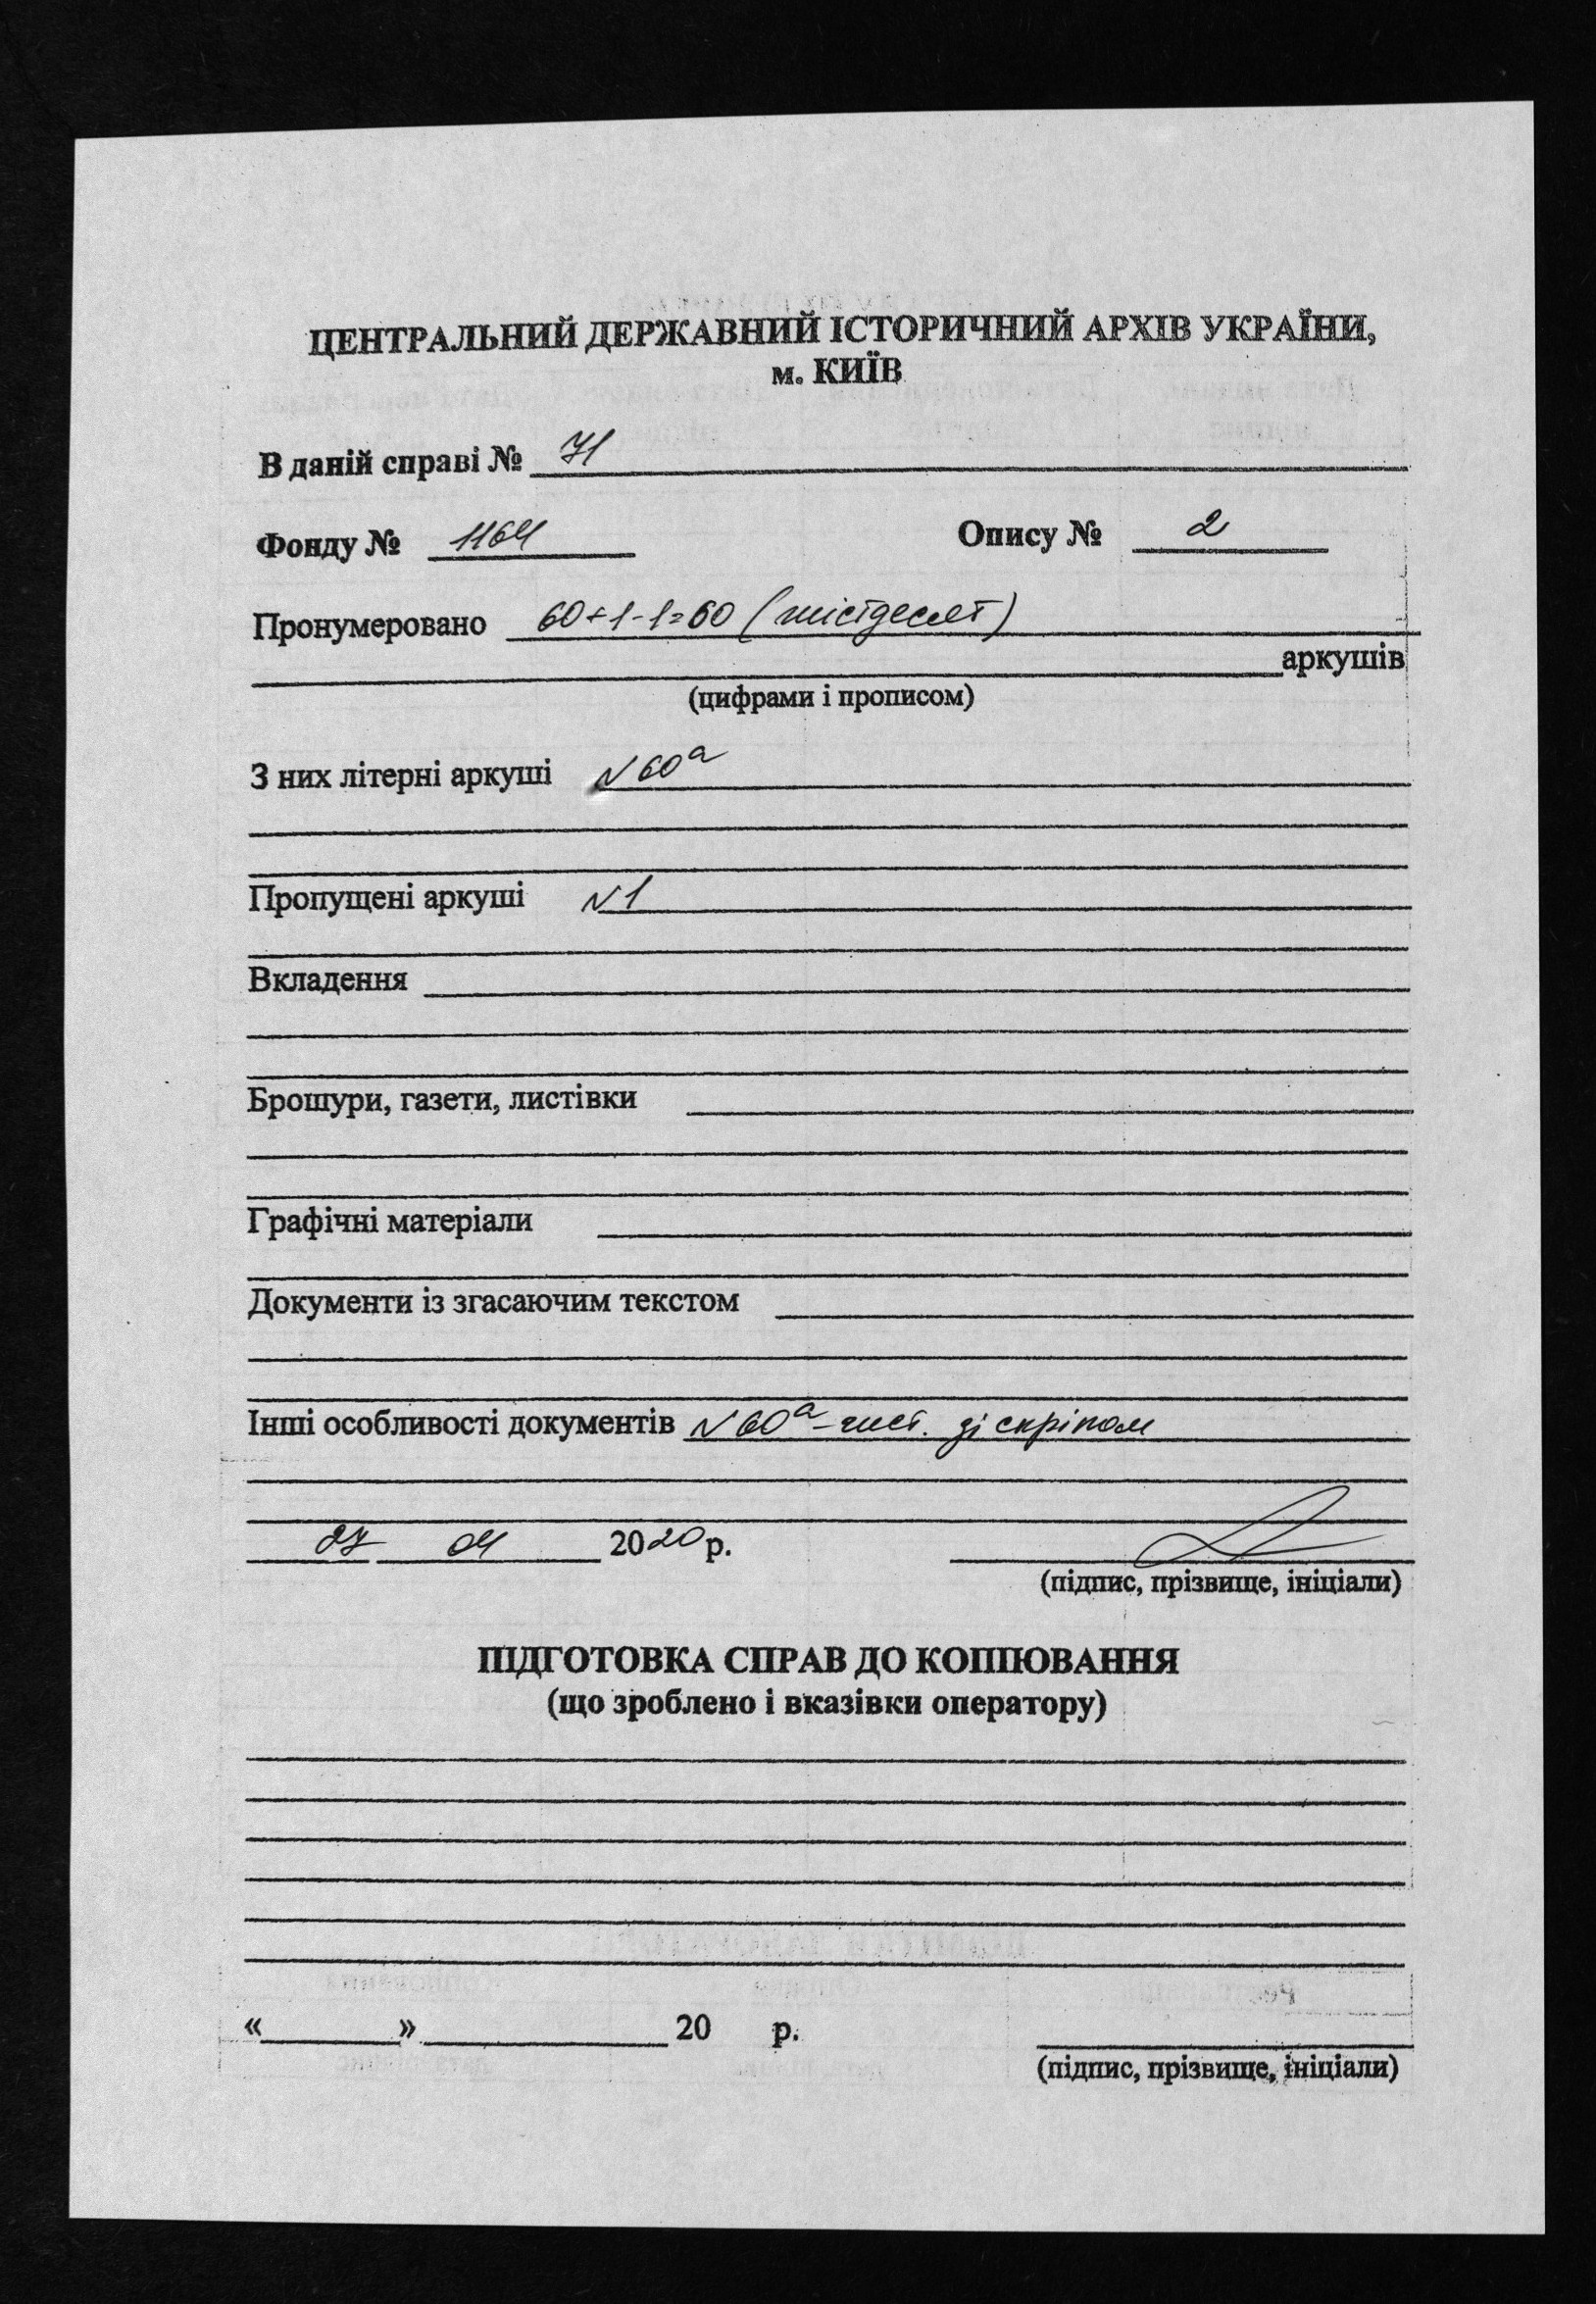 ЦЕНТРАЛЬНИЙ ДЕРЖАВНИЙ ІСТОРИЧНИЙ АРХІВ УКРАЇНИ,
м. КИЇВ
В даній справі № 71
Фонду № 1164 Опису № 2
Пронумеровано 60+1-1=60 (шістдесят)
аркушів
(цифрами і прописом)
З них літерні аркуші №60а
Пропущені аркуші №1
Вкладення
Брошури, газети, листівки
Графічні матеріали
Документи із згасаючим текстом
Інші особливості документів №60а - чист. зі скріпом
27 04 2020 р.
(підпис, прізвище, ініціали)
ПІДГОТОВКА СПРАВ ДО КОПІЮВАННЯ
(що зроблено і вказівки оператору)
« » 20 р.
(підпис, прізвище, ініціали)